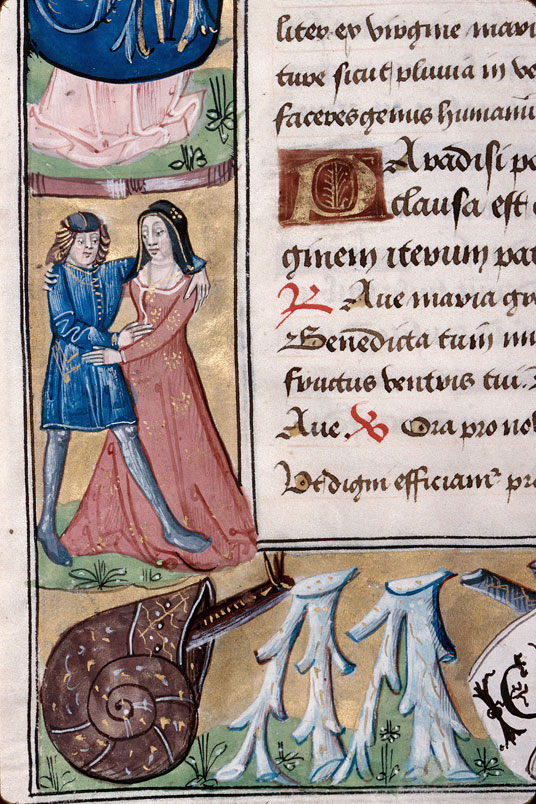 liter ex virgine mari
ture sicut pluuia in ve
faceres genus humanū
Paradisi po
clausa est
ginem iterum pat
Aue maria gra
Benedicta tu in mu
fructus ventris tui.
Aue. Ora pro nob
Vt digni efficiamr pro